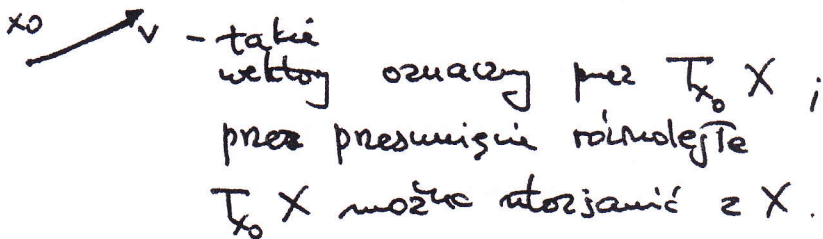 x₀ v – takie
wektory oznaczmy przez T_{x₀} X ;
przez przesunięcie równoległe
T_{x₀} X można utożsamić z X.